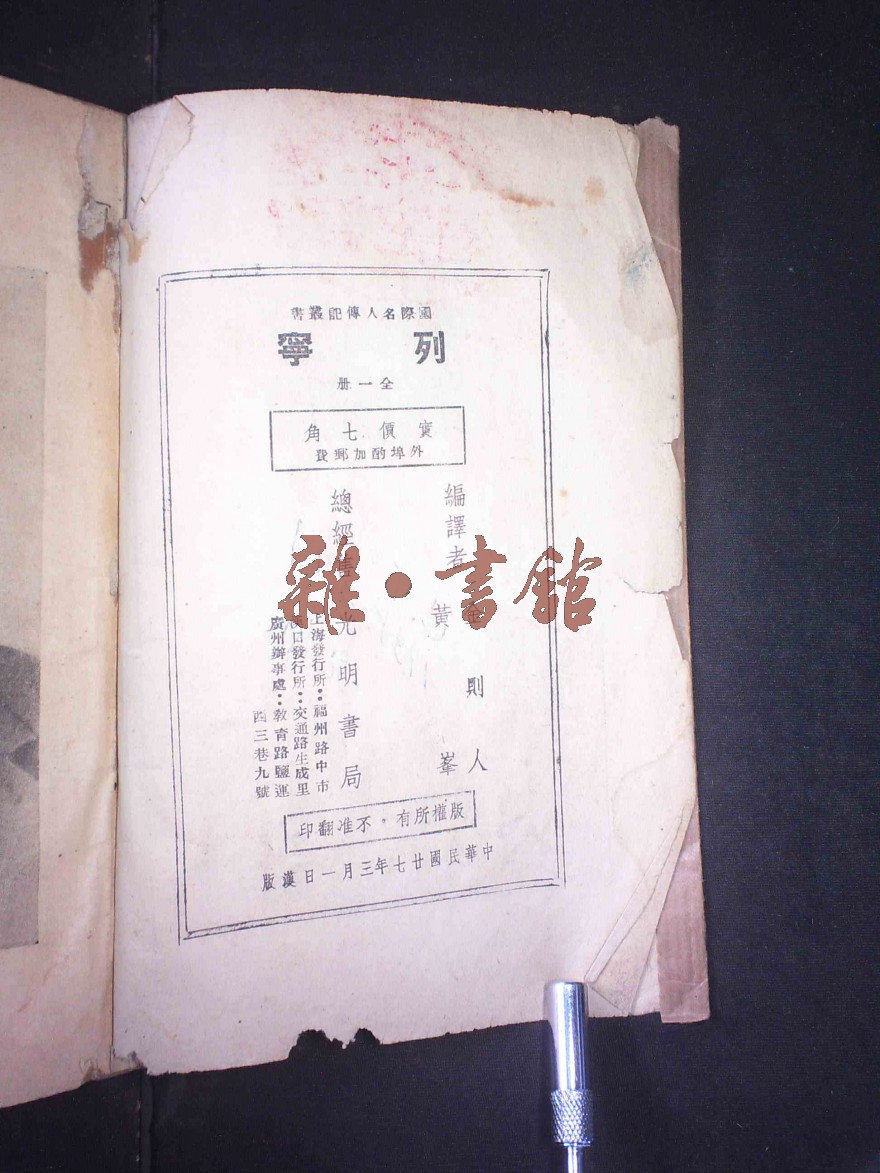 國際名人傳記叢書
列寧
全一册
實價七角
外埠酌加郵費
編譯者
則人
黃峯
總經售 光明書局
上海發行所：福州路中市
漢口發行所：交通路生成里
廣州辦事處：教育路鹽運
西三巷九號
版權所有・不准翻印
中華民國廿七年三月一日漢版
雜・書館